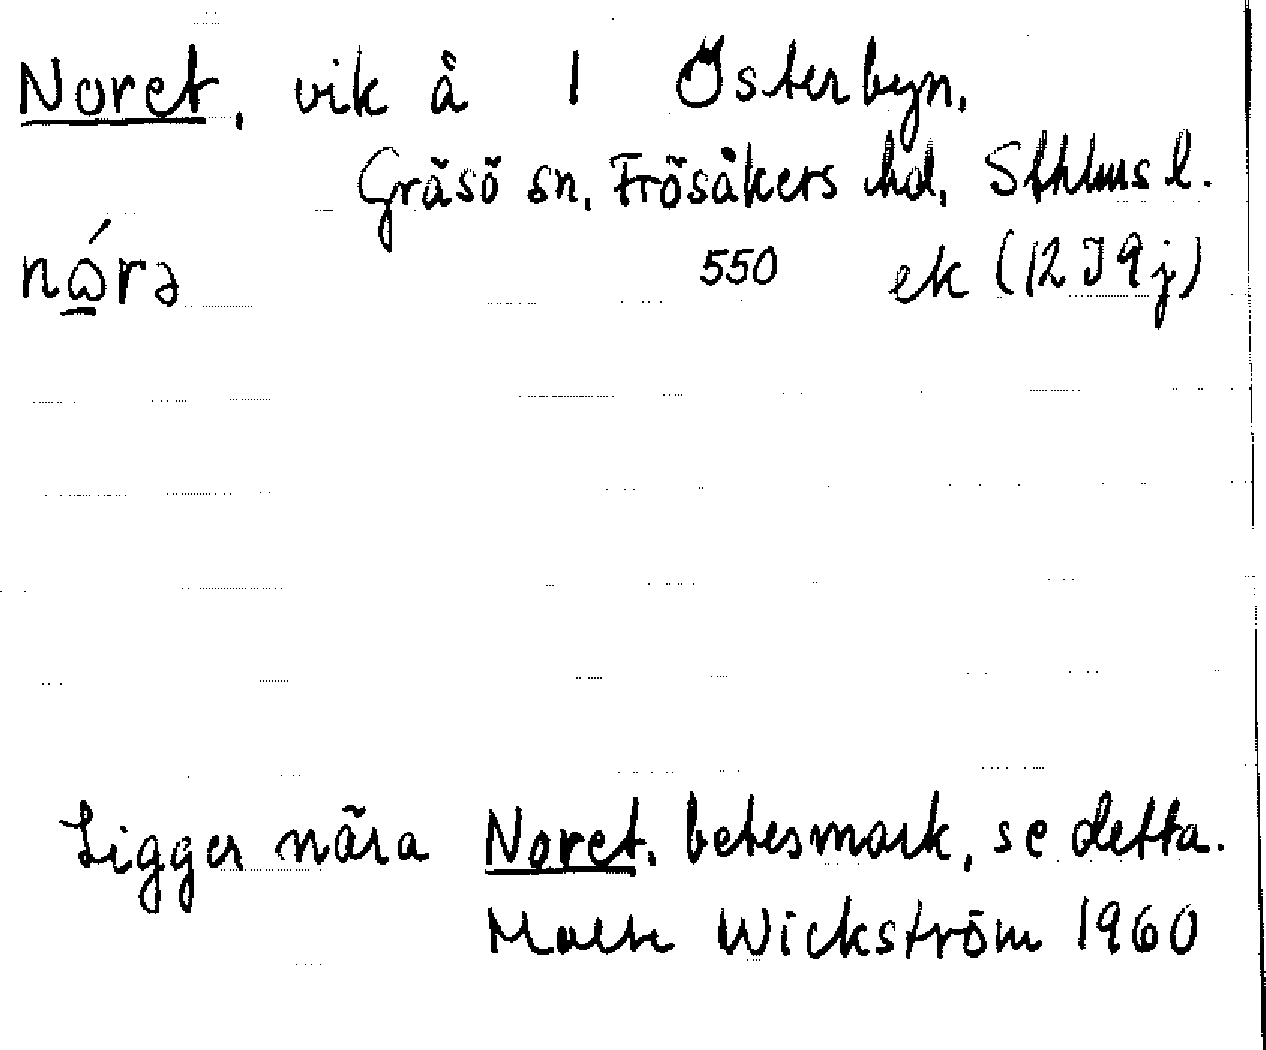 Noret, vik å 1 Österbyn,
Gräsö sn, Frösåkers hd, Sthlms l.
nώrə 550 ek (12 I 9 j)
Ligger nära Noret, betesmark, se detta.
Malte Wickström 1960